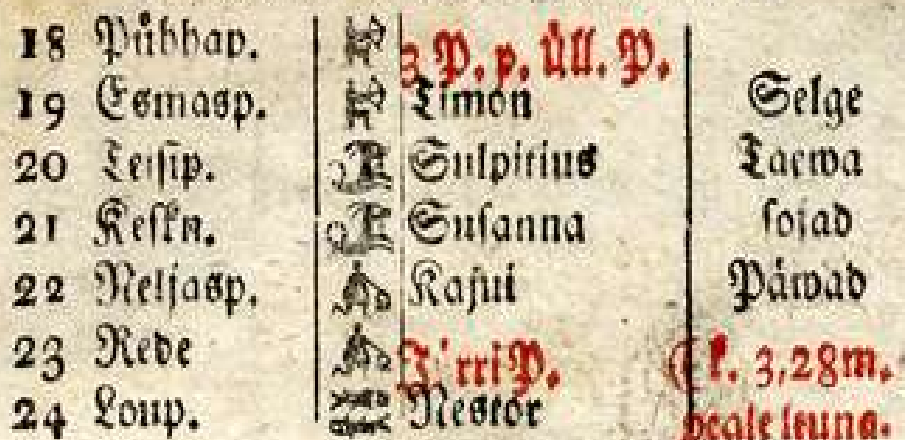 18 Pühhap. 3 P. p. üll. P.
19 Esmasp. Timon Selge
20 Teisip. Sulpitius Taewa
21 Keskn. Susanna sojad
22 Neljasp. Kajui Päwad
23 Rede Jürri P. k. 3,28m.
24 Loup. Nestor peale